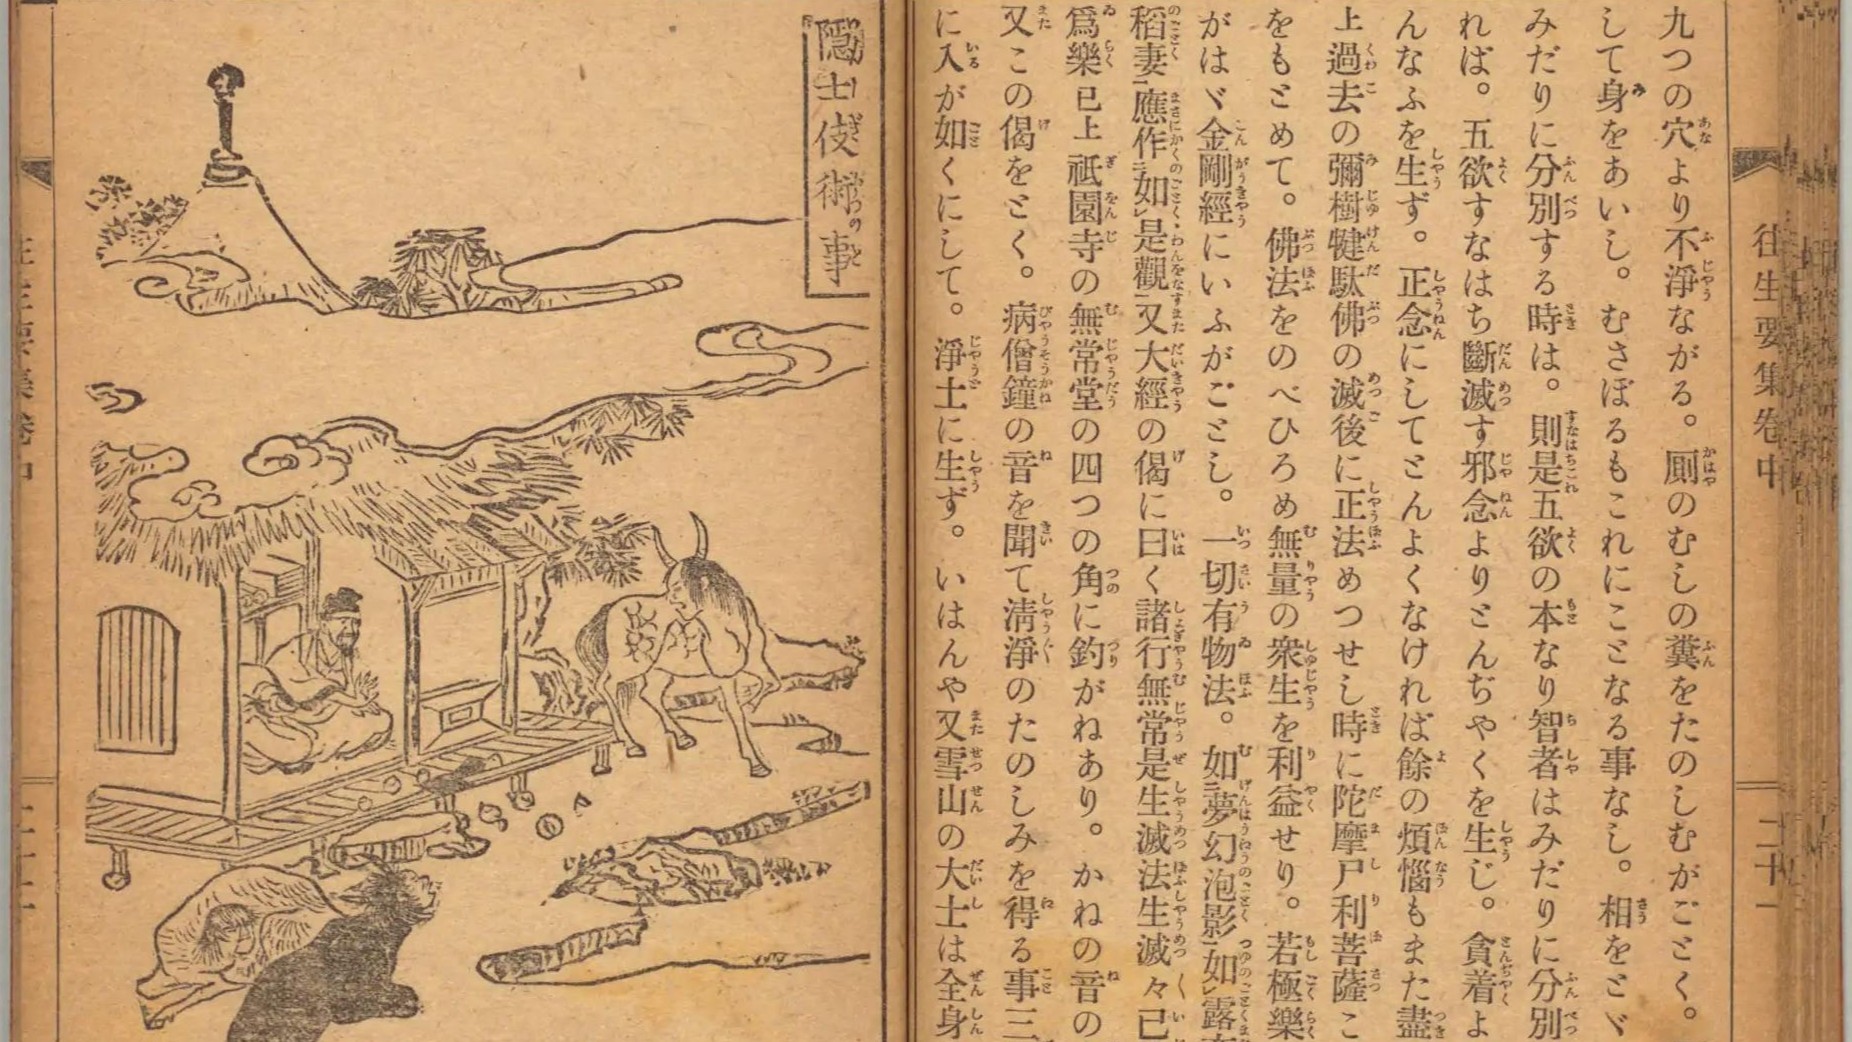 往生要集卷中
二十一
九つの穴より不淨ながる。厠のむしの糞をたのしむがごとく。
して身をあいし。むさぼるもこれにことなる事なし。相をとゞ
みだりに分別する時は。則是五欲の本なり智者はみだりに分別
れば。五欲すなはち斷滅す邪念よりとんぢやくを生じ。貪着よ
んなふを生ず。正念にしてとんよくなければ餘の煩惱もまた盡
上過去の彌樹犍駄佛の滅後に正法めつせし時に陀摩尸利菩薩こ
をもとめて。佛法をのべひろめ無量の衆生を利益せり。若極樂
がはゞ金剛經にいふがごとし。一切有物法。如夢幻泡影如露
稻妻應作如是觀又大經の偈に曰く諸行無常是生滅法生滅々已
爲樂已上祇園寺の無常堂の四つの角に釣がねあり。かねの音の
又この偈をとく。病僧鐘の音を聞て淸淨のたのしみを得る事三
に入が如くにして。淨土に生ず。いはんや又雪山の大士は全身
隱士伎術の事